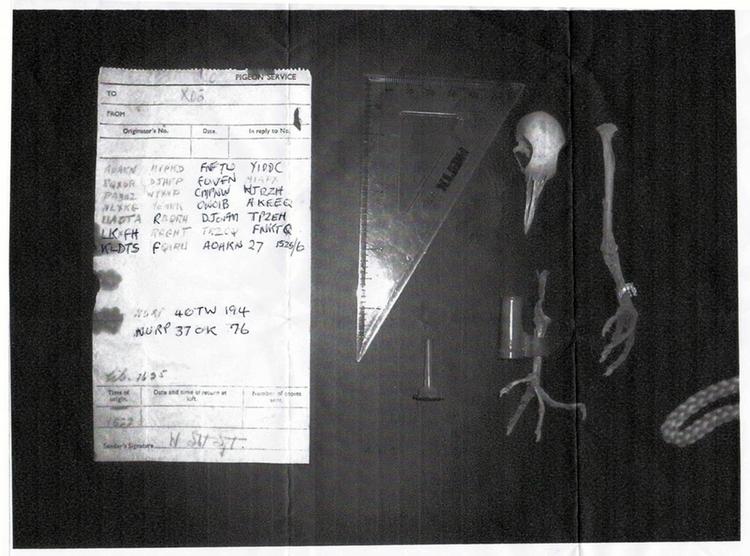 PIGEON SERVICE
TO X02
FROM
Originator's No. Date. In reply to No.
AOAKN HVPKD FNFTW YIDDC
RQXSR DJHFP GOVFN
PABUZ WYYNP CMPNW HJRZH
NLXKG OWOIB AKEEQ
UAOTA RBQRH DJOFM TPZEH
LKXGH RGGHT FNKTQ
KLDTS FQIRW AOAKN 27 1525/6
NURP 40TW 194
NURP 37OK 76
lib. 1625
Time of origin. Date and time of return at loft. Number of copies sent.
1522
Sender's Signature W Stot Sjt.
HELIX